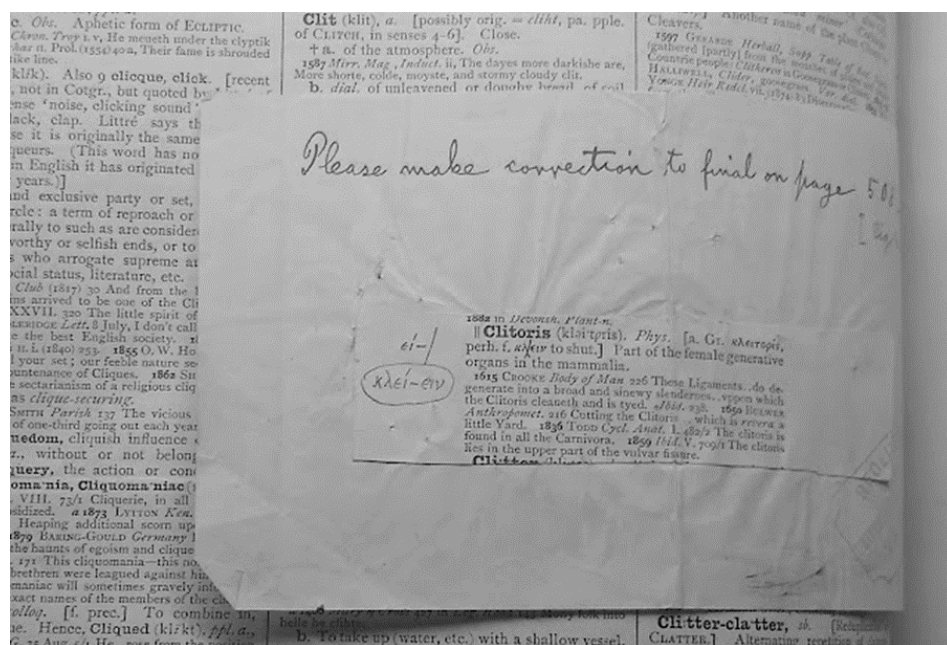 c. Obs. Aphetic form of ECLIPTIC.
Chron. Troy I. v, He meueth under the clyptik
Prol. (1554) 40 a, Their fame is shrouded
like line.
Also 9 clicque, click. [recent
not in Cotgr., but quoted by
ense 'noise, clicking sound'
lack, clap. Littré says th
se it is originally the same
queurs. (This word has no
m English it has originated
years.)]
nd exclusive party or set,
rcle: a term of reproach or
rally to such as are consider
worthy or selfish ends, or to
s who arrogate supreme au
cial status, literature, etc.
Club (1817) 30 And from the
ns arrived to be one of the Cli
XXVII. 320 The little spirit of
LERIDGE Lett. 8 July, I don't call
e the best English society.
n. i. (1840) 253. 1855 O. W. Ho
your set; our feeble nature se
untenance of Cliques. 1862 SH
e sectarianism of a religious cliq
as clique-securing.
SMITH Parish 137 The vicious
of one-third going out each year
uedom, cliquish influence
., without or not belong
query, the action or con
oma·nia, Cliquoma·niac
VIII. 73/1 Cliquerie, in all
sidized. a 1873 LYTTON Ken.
Heaping additional scorn up
1879 BARING-GOULD Germany
the haunts of egoism and clique
171 This cliquomania—this no
brethren were leagued against hi
maniac will sometimes gravely inf
exact names of the members of the cl
olloq. [f. prec.] To combine in,
e. Hence, Cliqued (klīkt), ppl. a.,
Clit (klit), a. [possibly orig. = cliht, pa. pple.
of CLITCH, in senses 4-6]. Close.
† a. of the atmosphere. Obs.
1587 Mirr. Mag., Induct. ii, The dayes more darkishe are,
More shorte, colde, moyste, and stormy cloudy clit.
b. dial. of unleavened or doughy bread, of soil
Another name of the plant
Cleavers.
1597 GERARDE Herball, Supp. Table
[gathered [partly] from the
Countrie people; Clitheren is Goosegrasse
HALLIWELL, Clider, goosegrass
Please make correction to final on page 506
εί-/
κλεί-ειν
1882 in Devonsh. Plant-n.
‖ Clitoris (kləi·tŏris). Phys. [a. Gr. κλειτορίς,
perh. f. κλειν to shut.] Part of the female generative
organs in the mammalia.
1615 CROOKE Body of Man 226 These Ligaments..do de-
generate into a broad and sinewy slendernes..vppon which
the Clitoris cleaueth and is tyed. Ibid. 238. 1650 BULWER
Anthropomet. 216 Cutting the Clitoris..which is revera a
little Yard. 1836 TODD Cycl. Anat. I. 482/2 The clitoris is
found in all the Carnivora. 1859 Ibid. V. 709/1 The clitoris
lies in the upper part of the vulvar fissure.
b. To take up (water, etc.) with a shallow vessel.
Cli·tter-clatter, sb. [Reduplicated
CLATTER.] Alternating repetition of